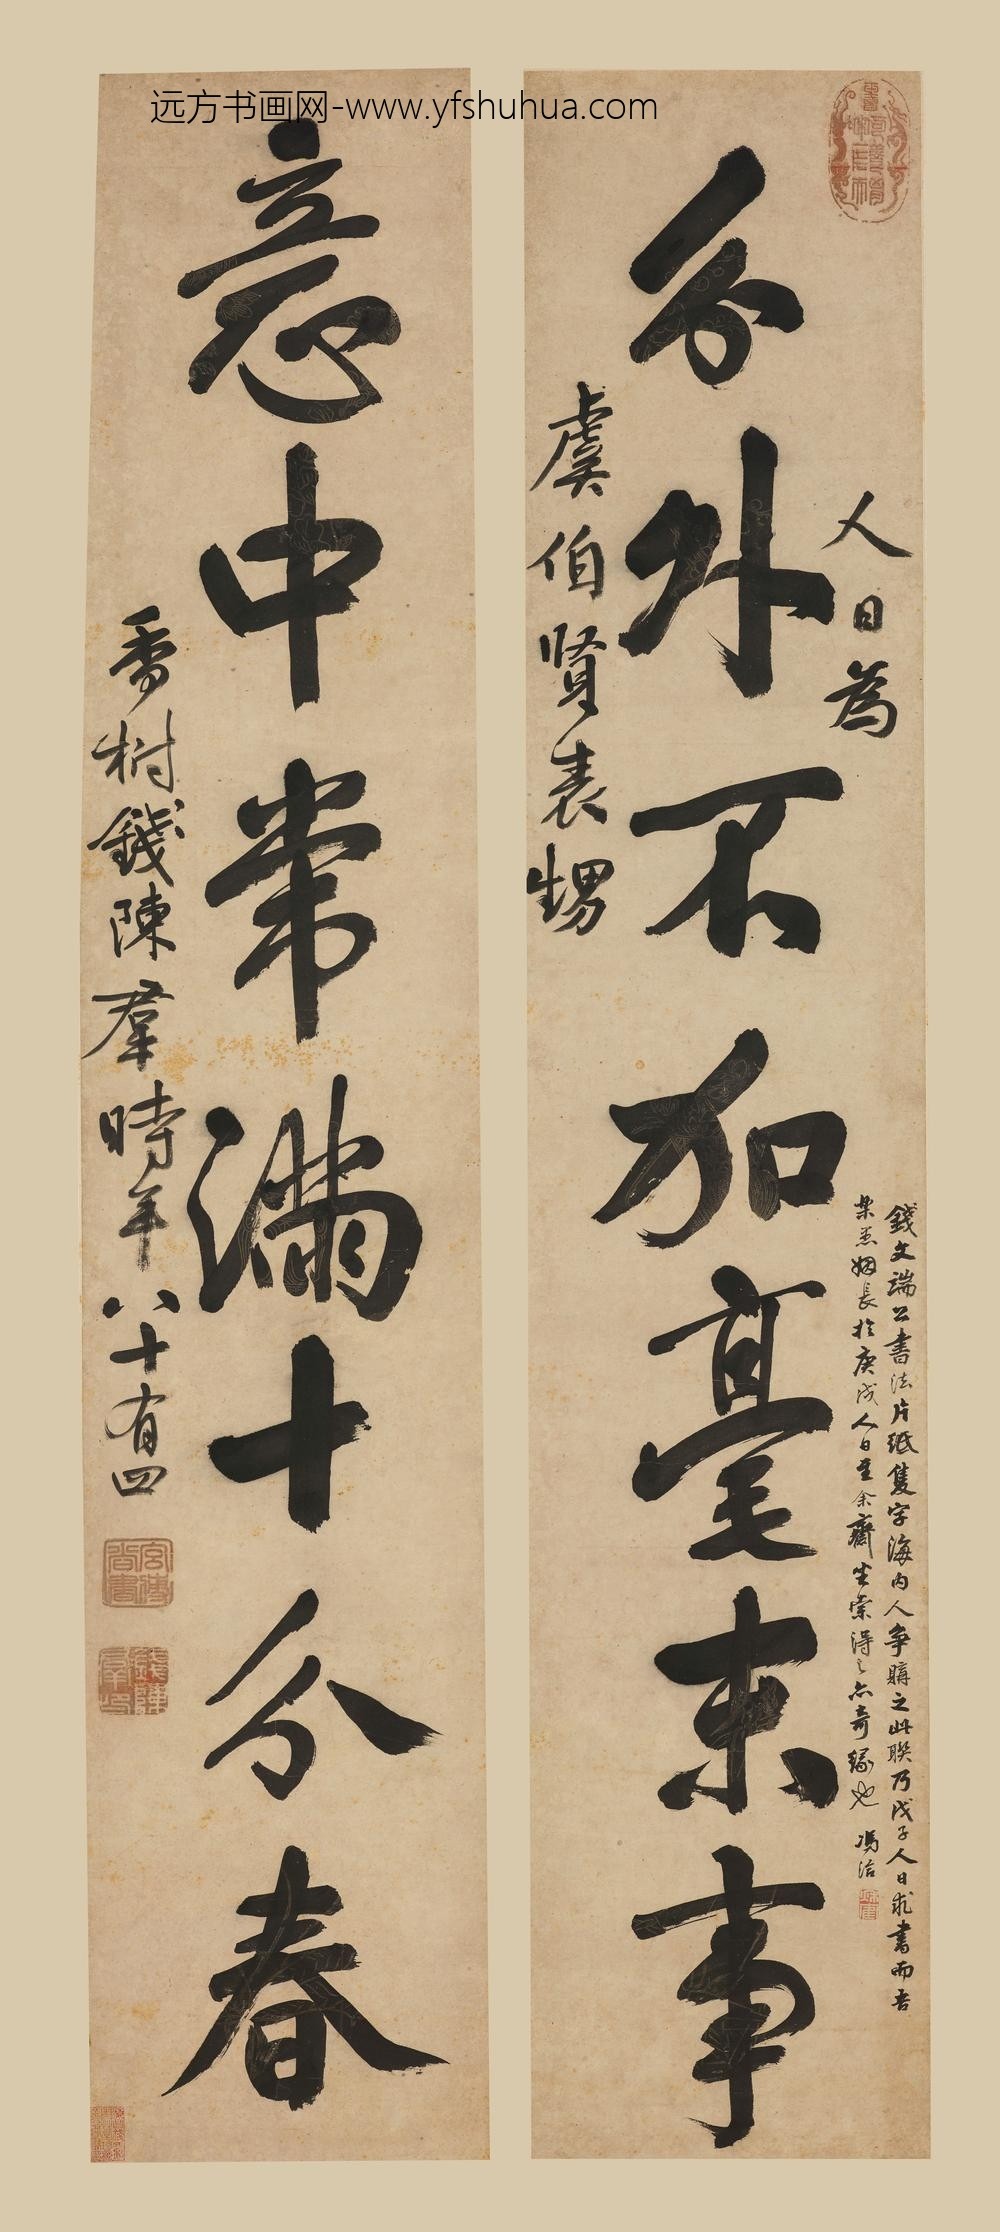 远方书画网-www.yfshuhua.com
分外不加毫末事
人日為
虞伯賢表甥
錢文端公書法片紙隻字海内人爭購之此聯乃戊子人日求書而吾
姻長於庚戌人日至余齋坐索得之亦奇緣也 馮洽
意中常滿十分春
香樹錢陳羣時年八十有四
宮傅尚書
錢陳羣印